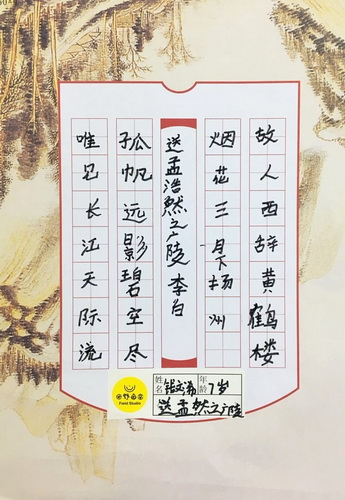 故人西辞黄鹤楼
烟花三月下扬州
送孟浩然之广陵 李白
孤帆远影碧空尽
唯见长江天际流
姓名
年龄 7岁
送孟 然之广陵